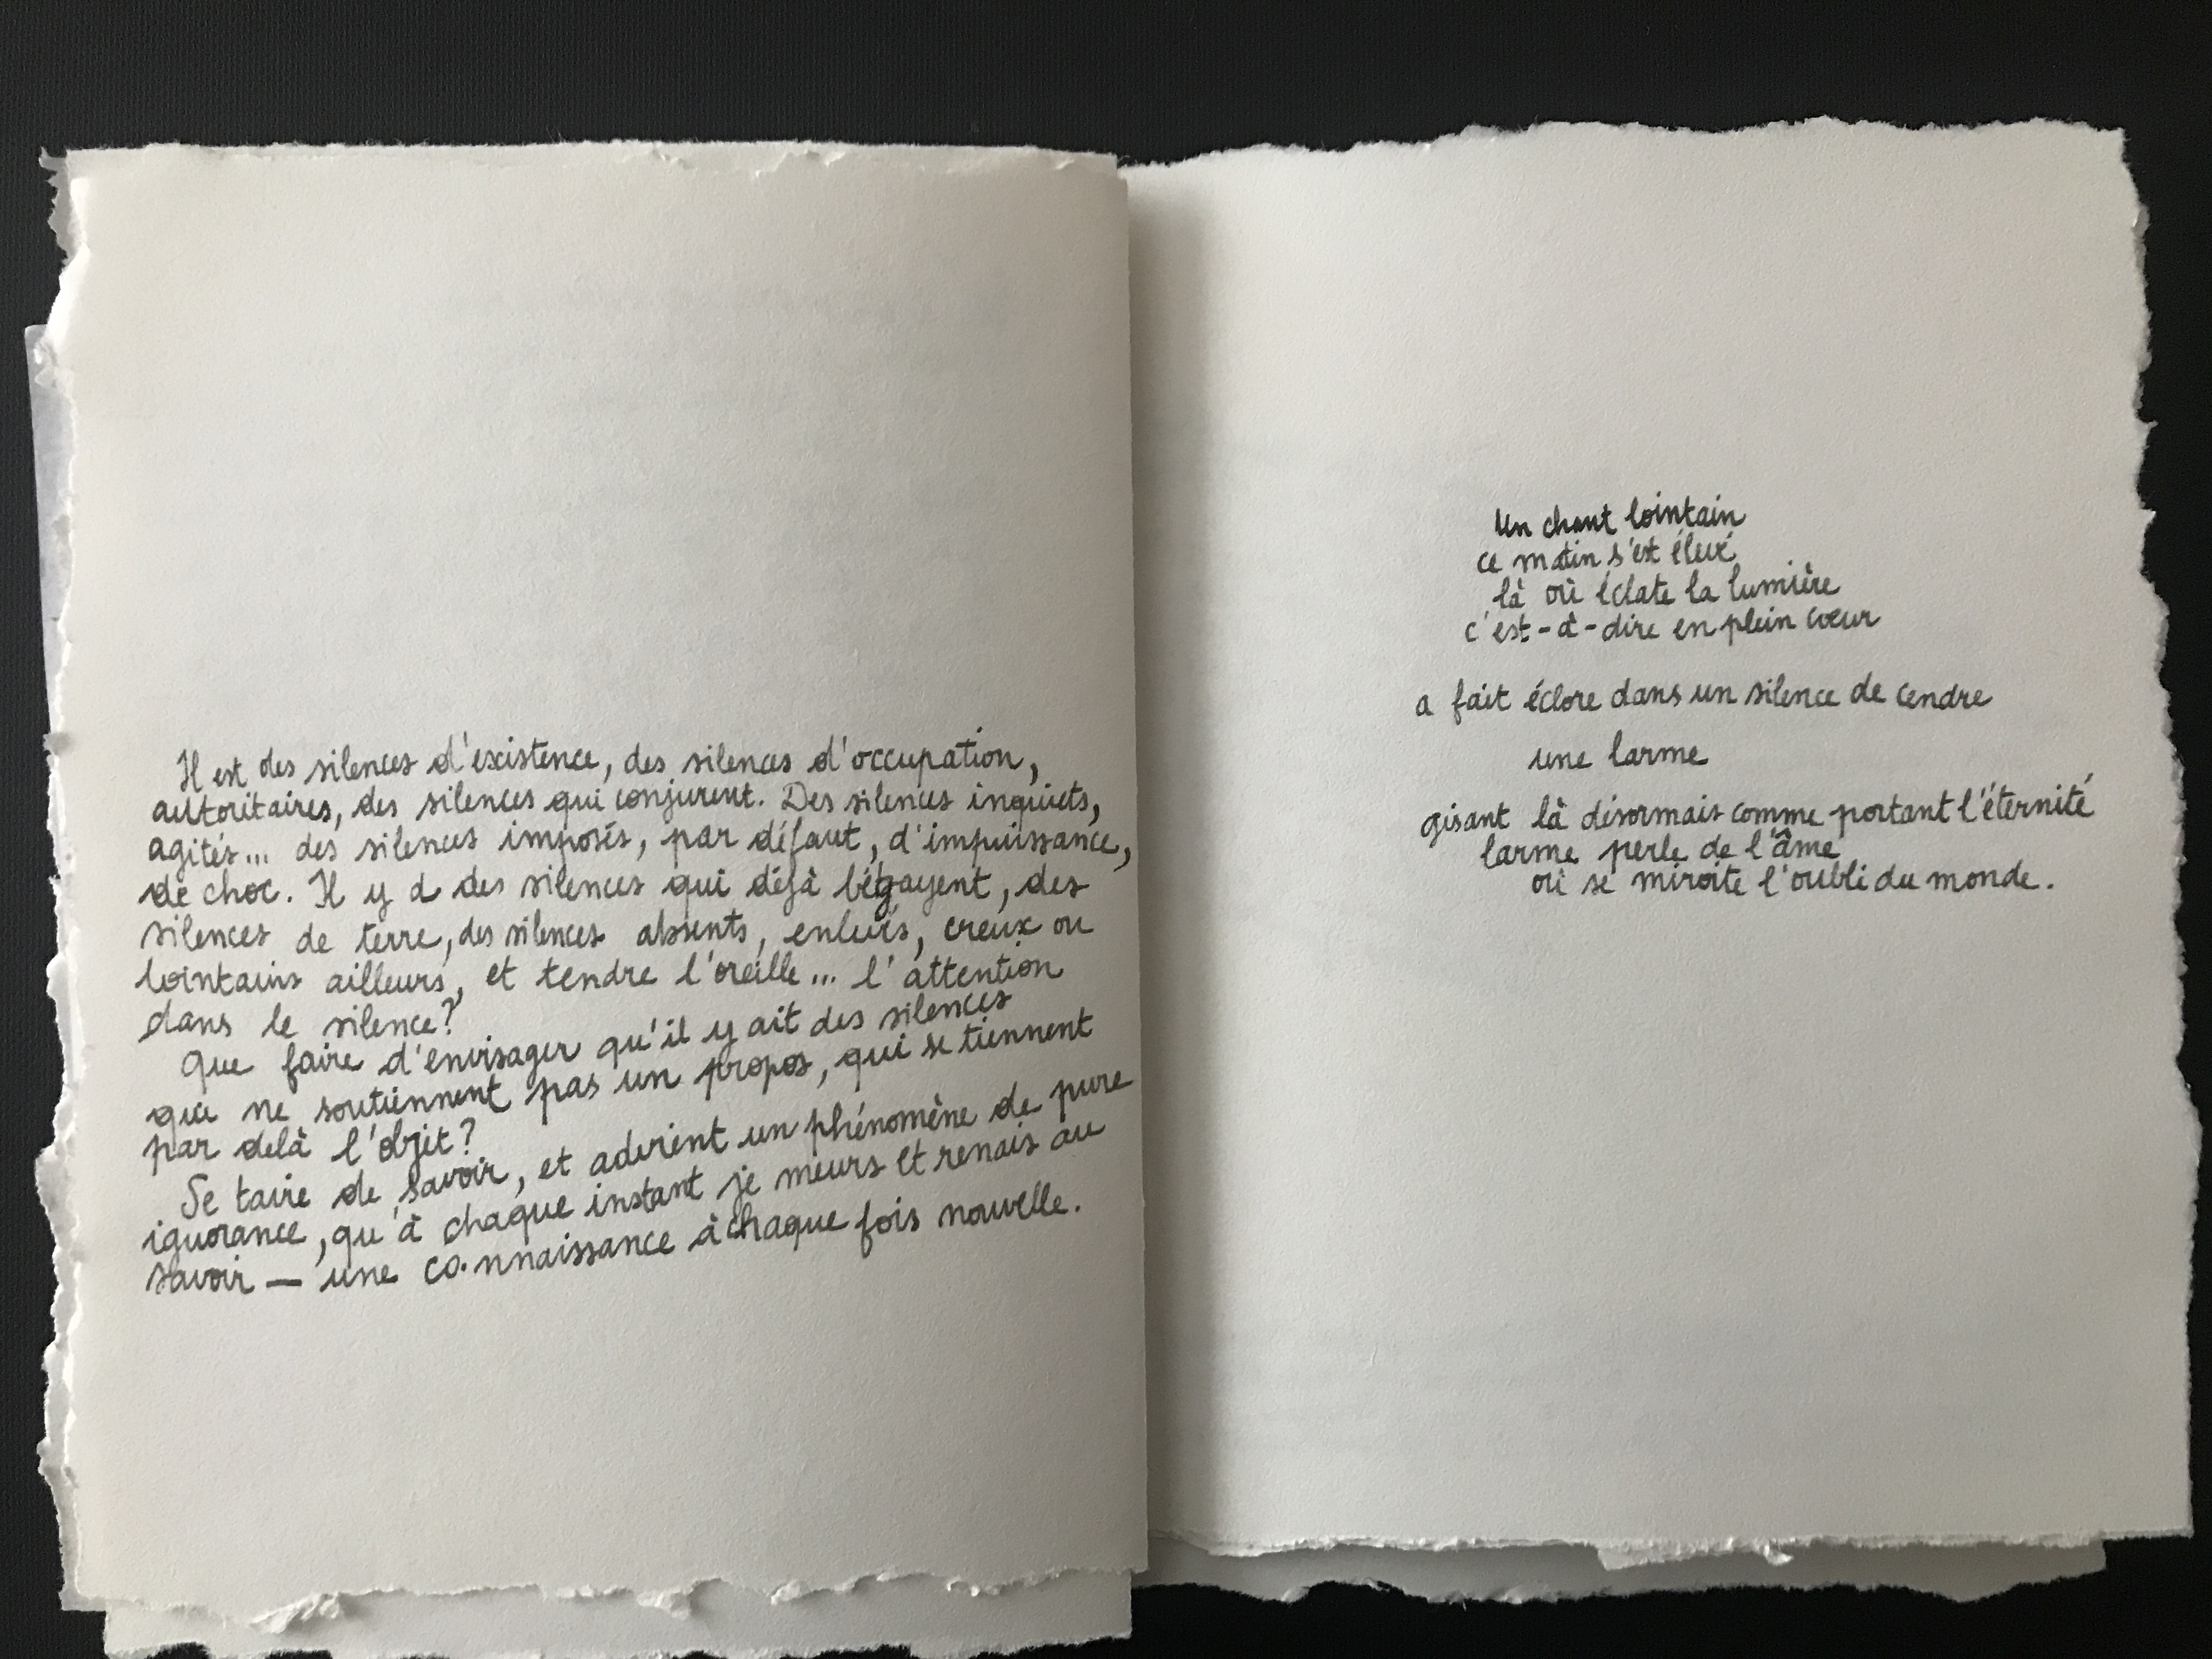 Il est des silences d'existence, des silences d'occupation,
autoritaires, des silences qui conjurent. Des silences inquiets,
agités... des silences imposés, par défaut, d'impuissance,
de choc. Il y a des silences qui déjà bégayent, des
silences de terre, des silences absents, enlevés, creux ou
lointains ailleurs, et tendre l'oreille... l'attention
dans le silence?
Que faire d'envisager qu'il y ait des silences
qui ne soutiennent pas un propos, qui se tiennent
par delà l'objet?
Se taire de savoir, et advient un phénomène de pure
ignorance, qu'à chaque instant je meurs et renais au
savoir — une co.nnaissance à chaque fois nouvelle.
Un chant lointain
ce matin s'est élevé
là où éclate la lumière
c'est-à-dire en plein cœur
a fait éclore dans un silence de cendre
une larme
gisant là désormais comme portant l'éternité
larme perle de l'âme
où se miroite l'oubli du monde.